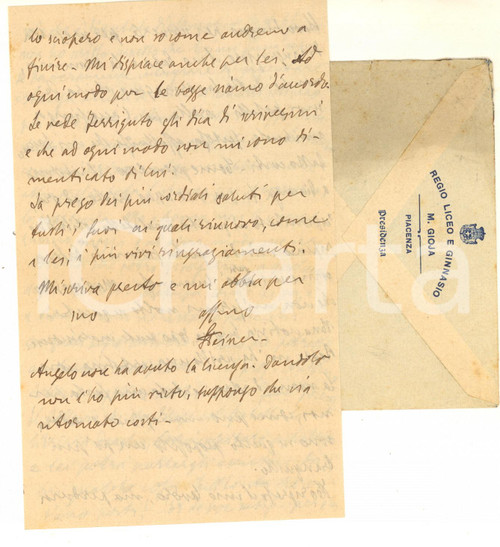 lo sciopero e non so come andremo a
finire. Mi dispiace anche per lei. Ad
ogni modo per le bozze siamo d'accordo.
Se vede Ferriguto gli dica di scrivermi
e che ad ogni modo non mi sono di-
menticato di lui.
La prego dei più cordiali saluti per
tutti i suoi ai quali rinnovo, come
a lei i più vivi ringraziamenti.
Mi scriva presto e mi abbia per
suo affmo
Steiner
Angelo non ha avuto la licenza. Dandolo
non l'ho più visto, suppongo che sia
ritornato costì.
REGIO LICEO E GINNASIO
M. GIOJA
PIACENZA
Presidenza
Charta